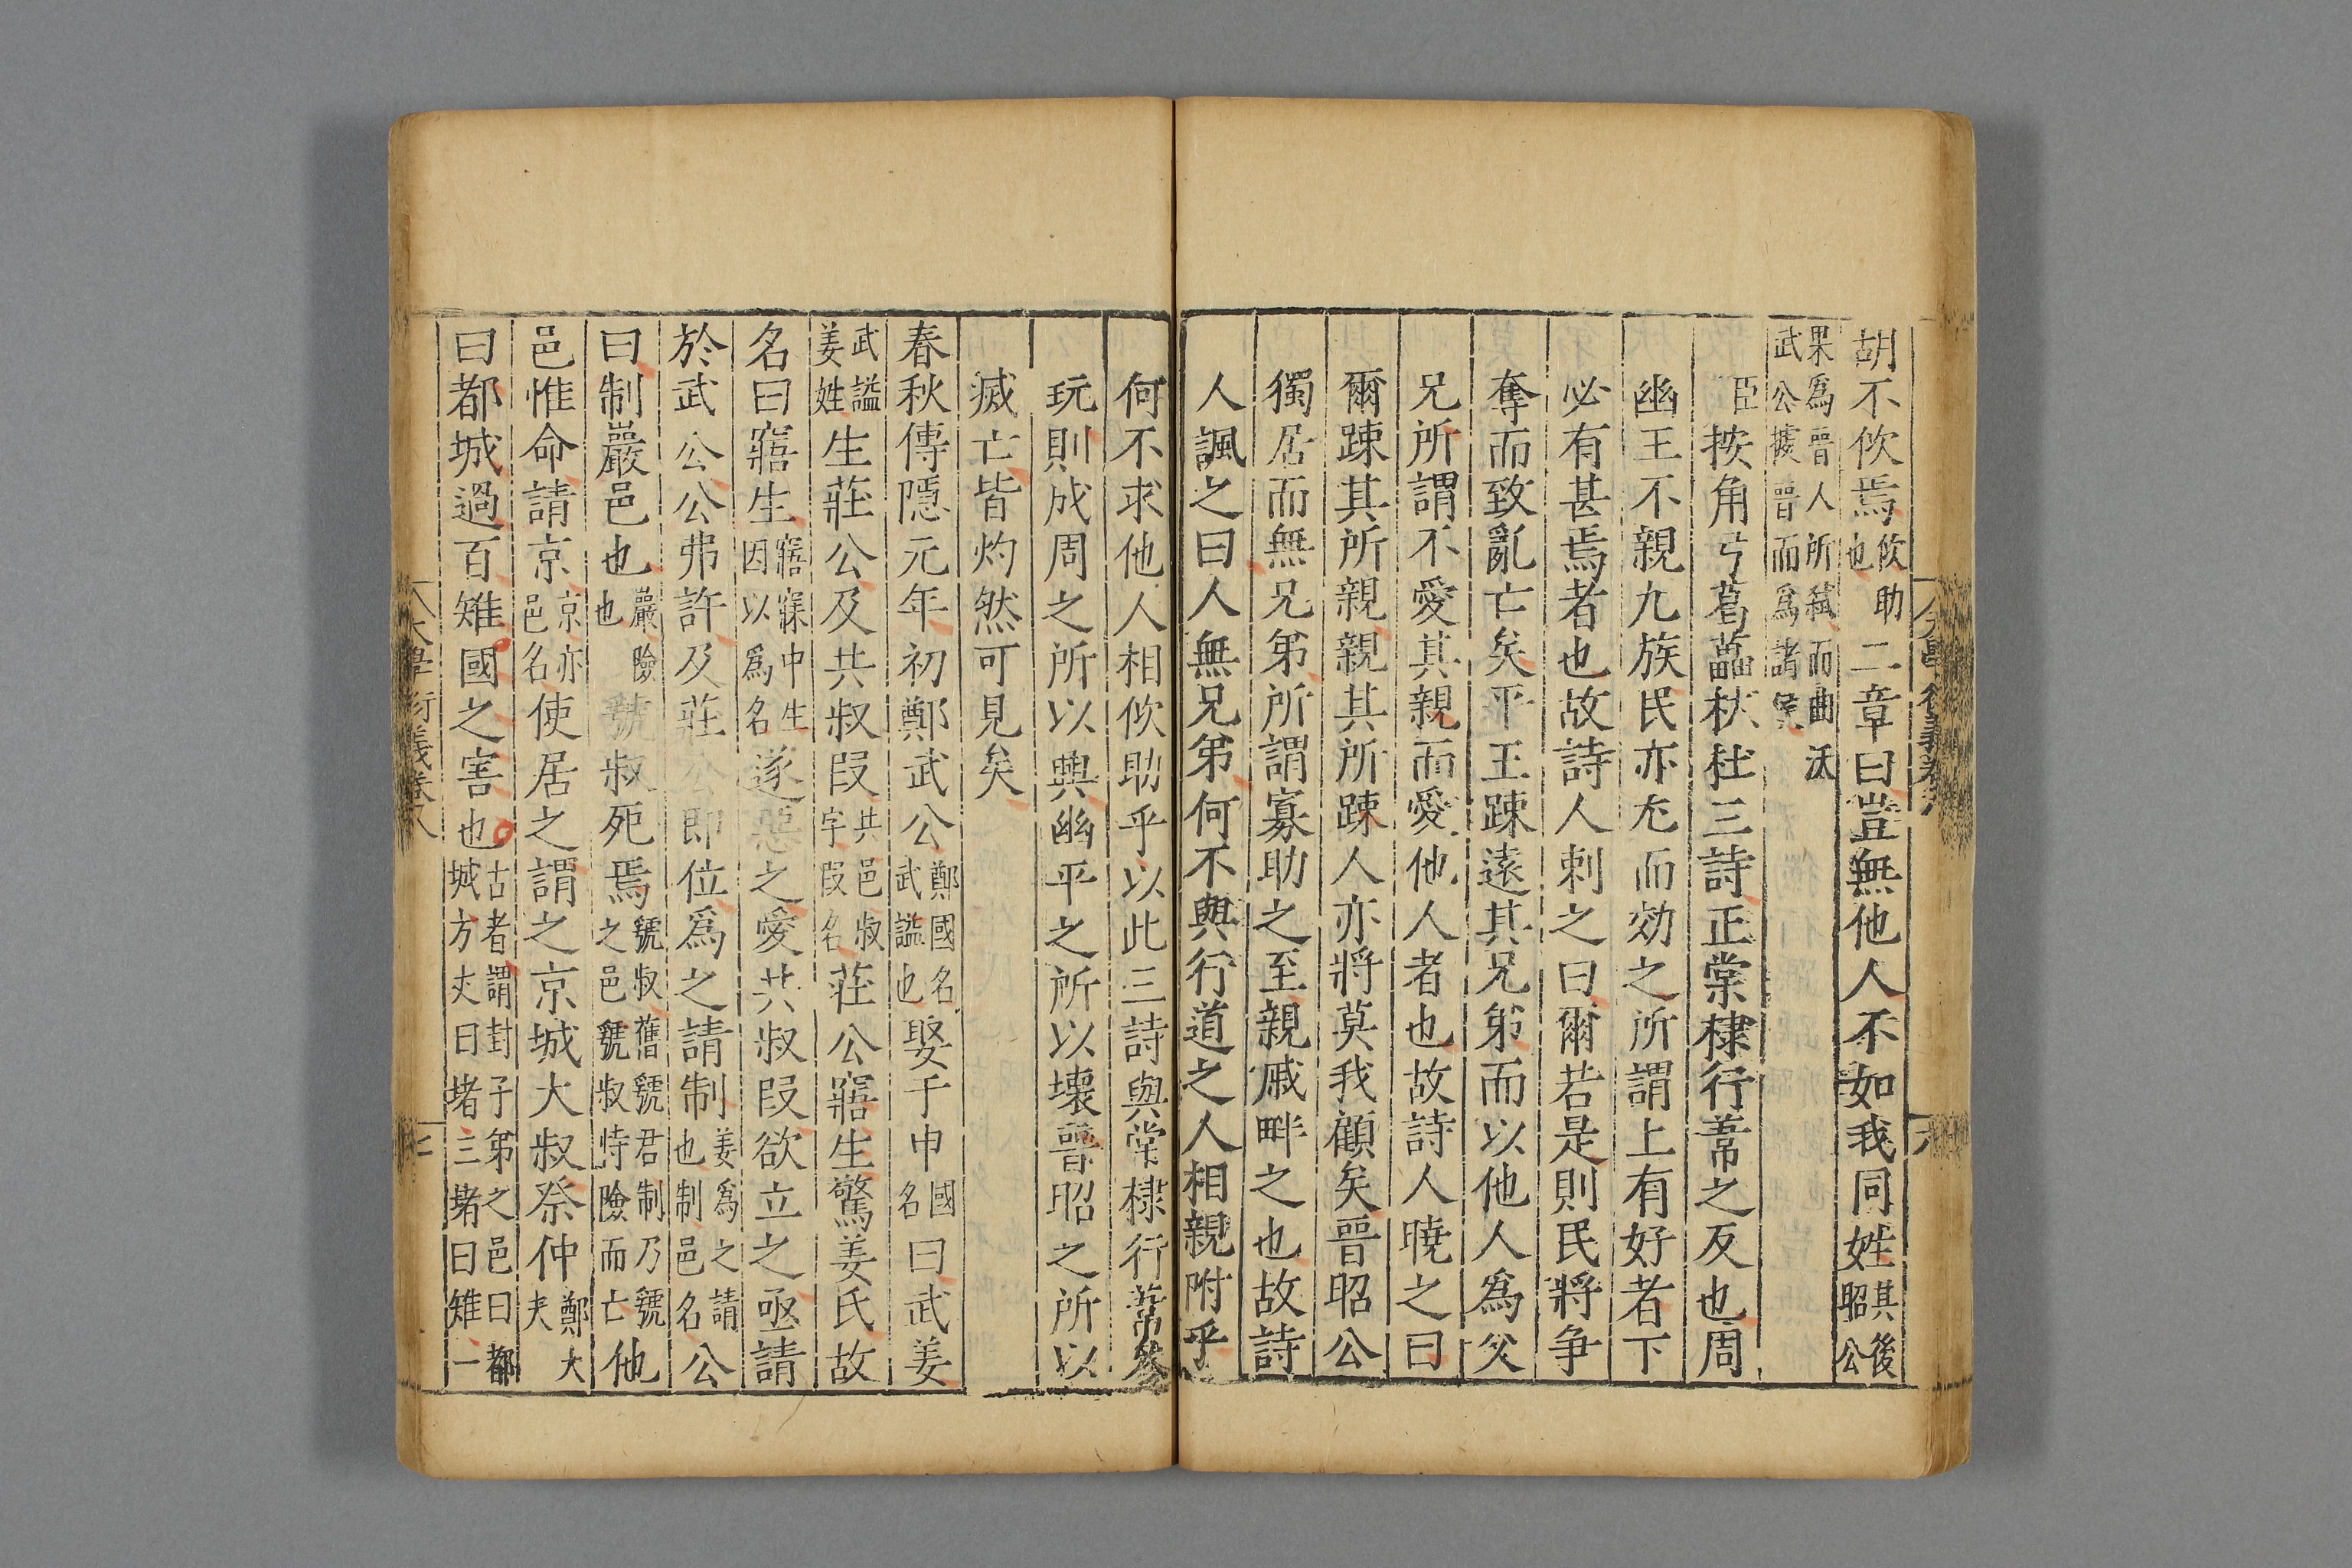 胡不佽焉佽助也二章曰豈無他人不如我同姓其後昭公
果爲晉人所弑而曲沃武公據晉而爲諸侯
臣按角弓葛藟杕杜三詩正棠棣行葦之反也周
幽王不親九族民亦尤而効之所謂上有好者下
必有甚焉者也故詩人刺之曰爾若是則民將爭
奪而致亂亡矣平王踈遠其兄弟而以他人爲父
兄所謂不愛其親而愛他人者也故詩人曉之曰
爾踈其所親親其所踈人亦將莫我顧矣晉昭公
獨居而無兄弟所謂寡助之至親戚畔之也故詩
人諷之曰人無兄弟何不與行道之人相親附乎
何不求他人相佽助乎以此三詩與棠棣行葦參
玩則成周之所以興幽平之所以壞晉昭之所以
滅亡皆灼然可見矣
春秋傳隱元年初鄭武公鄭國名武謚也娶于申國名曰武姜
武謚姜姓生莊公及共叔段共邑叔字段名莊公寤生驚姜氏故
名曰寤生寤寐中生因以爲名遂惡之愛共叔段欲立之亟請
於武公公弗許及莊公即位爲之請制姜爲之請也制邑名公
曰制巖邑也巖險也虢叔死焉虢叔舊虢君制乃虢之邑虢叔恃險而亡他
邑惟命請京京亦邑名使居之謂之京城大叔祭仲鄭大夫
曰都城過百雉國之害也古者謂封子弟之邑曰都城方丈曰堵三堵曰雉一
大學衍義卷八
七